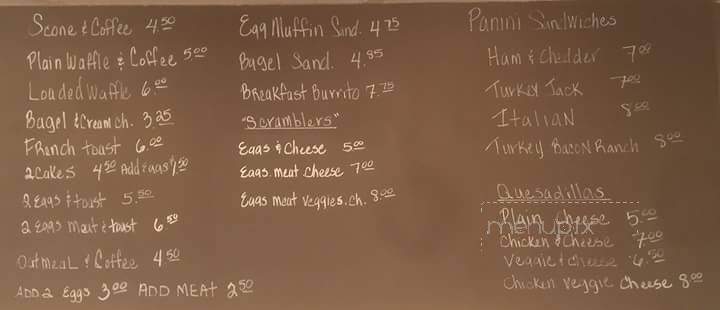 Scone & Coffee 4.50
Plain Waffle & Coffee 5.00
Loaded Waffle 6.00
Bagel & Cream ch. 3.25
French toast 6.00
2 cakes 4.50 Add eggs 1.50
2 Eggs & toast 5.50
2 eggs meat & toast 6.50
Oatmeal & Coffee 4.50
ADD 2 Eggs 3.00 ADD MEAT 2.50
Egg Muffin Sand. 4.75
Bagel Sand. 4.85
Breakfast Burrito 7.75
"Scramblers"
Eggs & Cheese 5.00
Eggs. meat cheese 7.00
Eggs meat veggies. ch. 8.00
Panini Sandwiches
Ham & Chedder 7.00
Turkey Jack 7.00
Italian 8.00
Turkey Bacon Ranch 8.00
Quesadillas
Plain cheese 5.00
menupix
Chicken & Cheese 7.00
Veggie & Cheese 6.50
Chicken veggie cheese 8.00